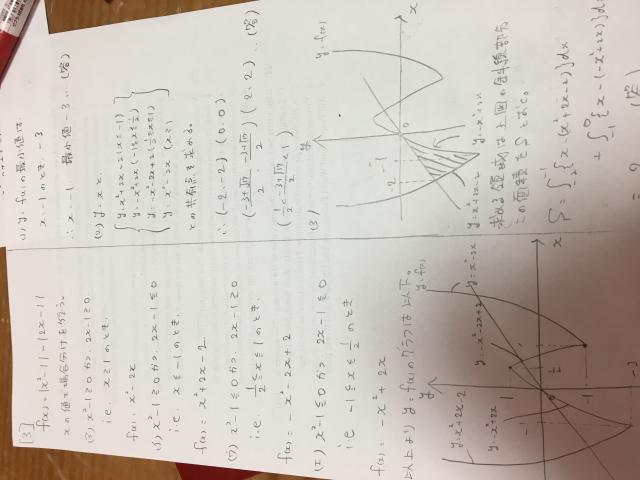 [3]
f(x) = |x²-1| - |2x-1|
xの値で場合分けを行う。
(ア) x²-1≧0 かつ 2x-1≧0
i.e. x≧1 のとき.
f(x) = x²-2x
(イ) x²-1≧0 かつ 2x-1≦0
i.e. x≦-1 のとき.
f(x) = x²+2x-2
(ウ) x²-1≦0 かつ 2x-1≧0
i.e. 1/2≦x≦1 のとき.
f(x) = -x²-2x+2
(エ) x²-1≦0 かつ 2x-1≦0
i.e. -1≦x≦1/2 のとき
f(x) = -x²+2x
以上より y=f(x) のグラフは以下。
y
y=f(x)
y=x²+2x-2
y=-x²+2x
y=-x²-2x+2
y=x²-2x
1
-1
0
1/2
1
-1
-3
x
(1) y=f(x) の最小値は
x=-1 のとき -3
∴ x=-1 最小値 -3 … (答)
(2) y=x と.
y=x²+2x-2 (x≦-1)
y=-x²+2x (-1≦x≦1/2)
y=-x²-2x+2 (1/2≦x≦1)
y=x²-2x (x≧1)
との共有点を求める。
∴ (-2, -2) (0, 0)
((-3+√17)/2, (-3+√17)/2) (2, 2) … (答)
(1/2<(-3+√17)/2<1)
(3)
y
y=f(x)
-2
-1
0
x
y=x²+2x-2
y=-x²+2x
求める領域は上図の斜線部分
この面積をSとおく。
S=∫₋₂⁻¹{x-(x²+2x-2)}dx
+ ∫₋₁⁰{x-(-x²+2x)}dx
(答)